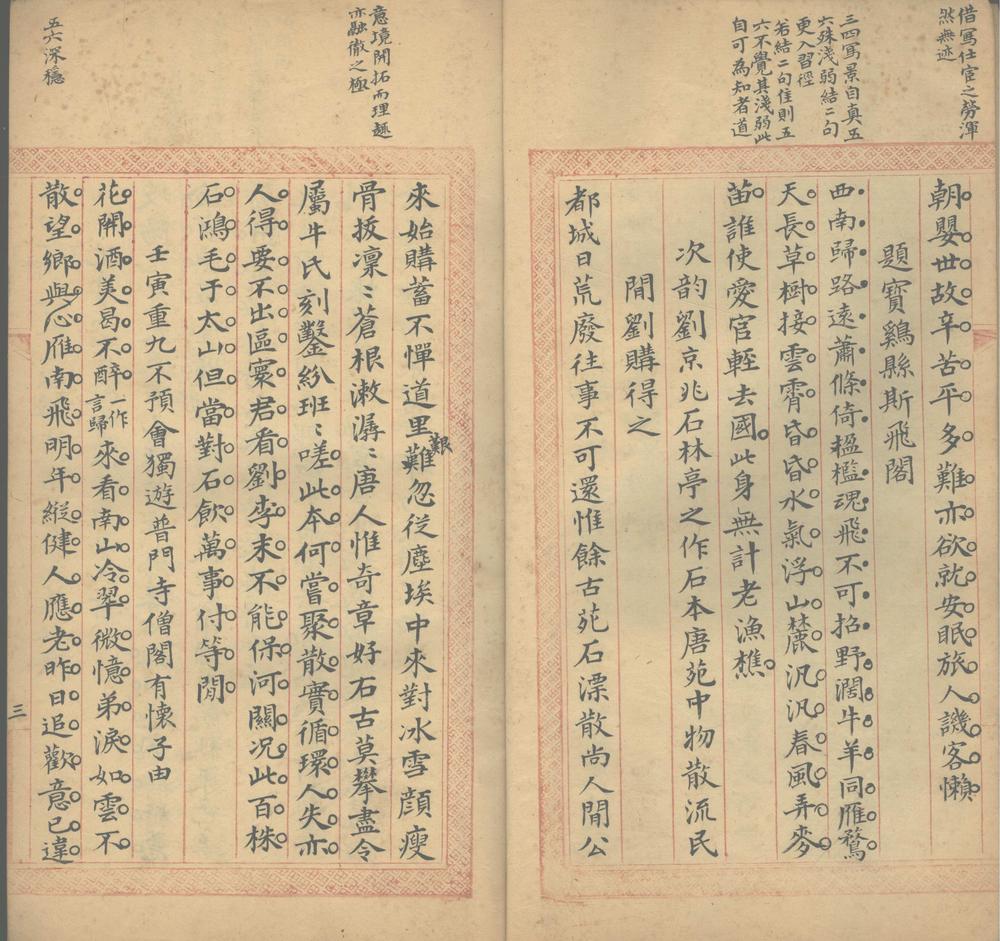 借寫仕宦之勞渾
然無迹
三四寫景自真五
六殊淺弱結二句
更入習徑
若結二句佳則五
六不覺其淺弱此
自可為知者道
朝嬰世故辛苦平多難亦欲就安眠旅人譏客懶
題寶鷄縣斯飛閣
西南歸路遠蕭條倚楹檻魂飛不可招野濶牛羊同雁鶩
天長草樹接雲霄昏昏水氣浮山麓汎汎春風弄麥
苗誰使愛官輕去國此身無計老漁樵
次韵劉京兆石林亭之作石本唐苑中物散流民
間劉購得之
都城日荒廢往事不可還惟餘古苑石漂散尚人間公
意境開拓而理趣
亦融徹之極
五六深穩
來始購蓄不憚道里難艱忽從塵埃中來對冰雪顏瘦
骨拔凛〻蒼根漱潺〻唐人惟奇章好石古莫攀盡令
屬牛氏刻鑿紛班〻嗟此本何嘗聚散實循環人失亦
人得要不出區寰君看劉李末不能保河關况此百株
石鴻毛于太山但當對石飲萬事付等閒
壬寅重九不預會獨遊普門寺僧閣有懷子由
花開酒美曷不醉一作言歸來看南山冷翠微憶弟淚如雲不
散望鄉與心雁南飛明年縱健人應老昨日追歡意已違
三